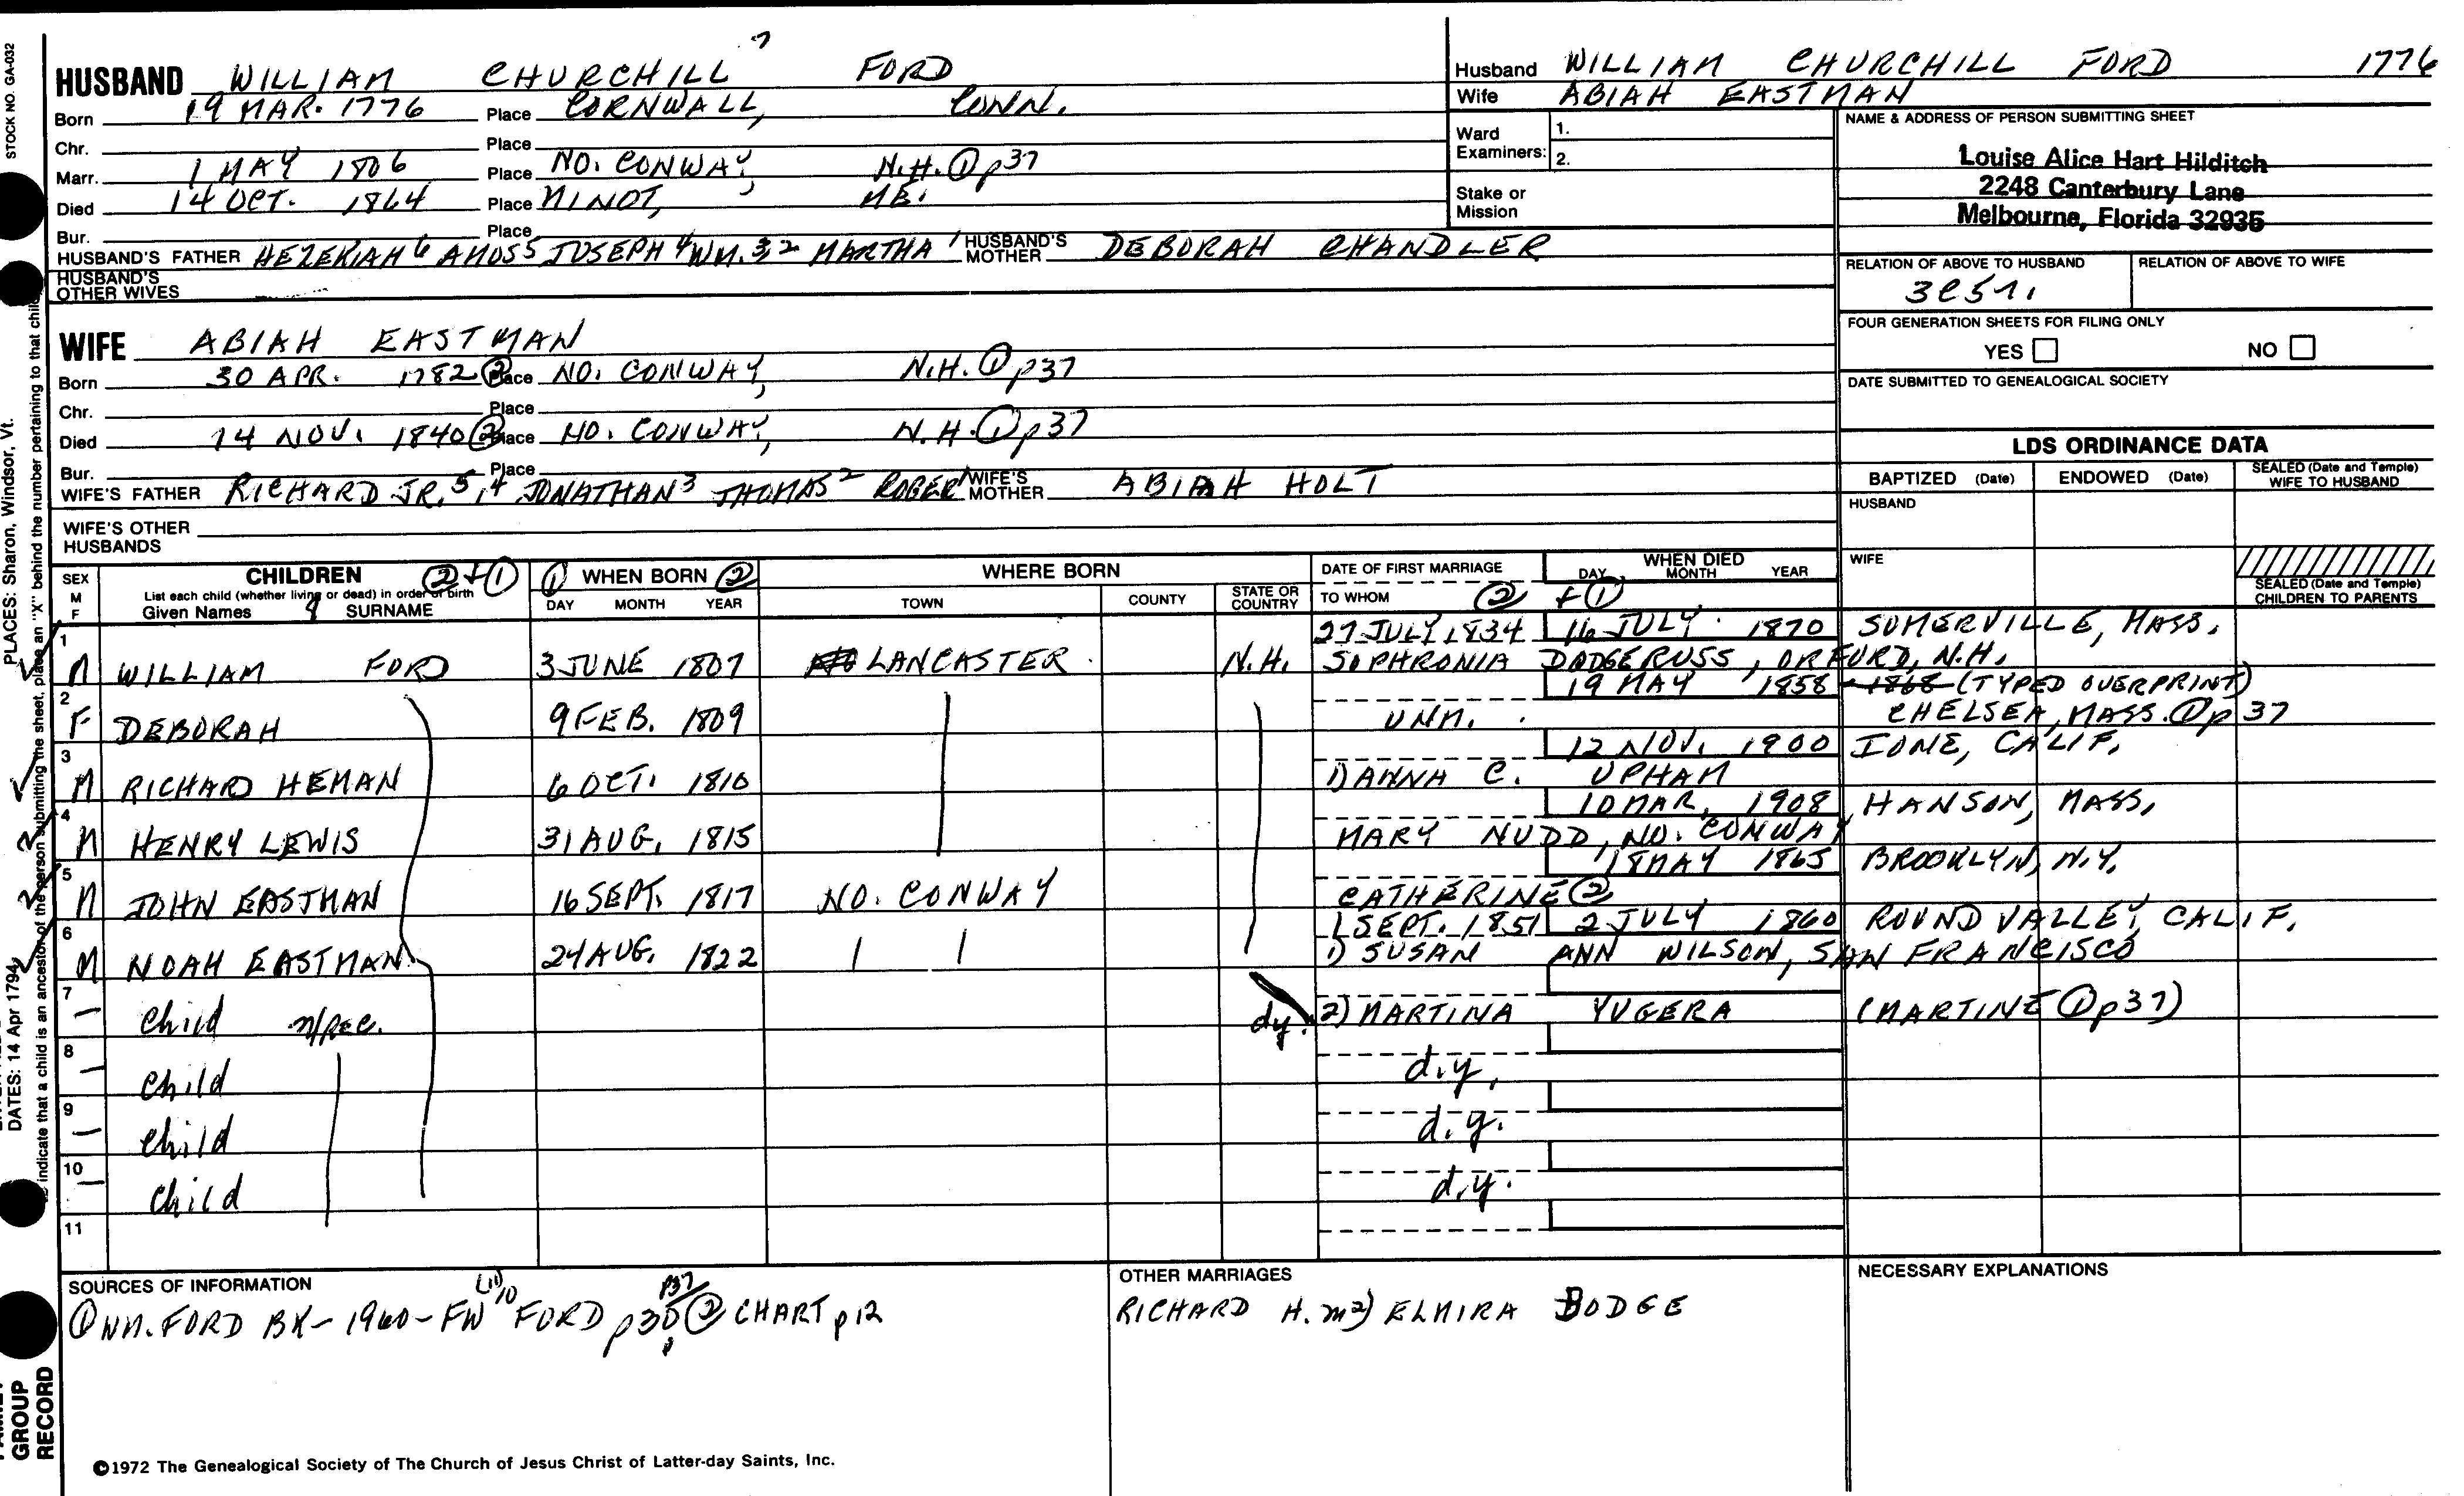 STOCK NO. GA-032
HUSBAND WILLIAM CHURCHILL 7 FORD
Born 19 MAR. 1776 Place CORNWALL, CONN.
Chr. Place
Marr. 1 MAY 1806 Place NO. CONWAY, N.H. ① p37
Died 14 OCT. 1864 Place MINOT, ME.
Bur. Place
HUSBAND'S FATHER HEZEKIAH 6 AMOS 5 JOSEPH 4 WM. 3 2 MARTHA 1 HUSBAND'S MOTHER DEBORAH CHANDLER
HUSBAND'S OTHER WIVES
Husband WILLIAM CHURCHILL FORD 1776
Wife ABIAH EASTMAN
Ward Examiners: 1.
2.
Stake or Mission
NAME & ADDRESS OF PERSON SUBMITTING SHEET
Louise Alice Hart Hilditch
2248 Canterbury Lane
Melbourne, Florida 32935
RELATION OF ABOVE TO HUSBAND RELATION OF ABOVE TO WIFE
FOUR GENERATION SHEETS FOR FILING ONLY
YES NO
DATE SUBMITTED TO GENEALOGICAL SOCIETY
WIFE ABIAH EASTMAN
Born 30 APR. 1782 ② Place NO. CONWAY, N.H. ① p37
Chr. Place
Died 14 NOV. 1840 ② Place NO. CONWAY, N.H. ① p37
Bur. Place
WIFE'S FATHER RICHARD JR. 5, 4 JONATHAN 3 THOMAS 2 ROGER 1 WIFE'S MOTHER ABIAH HOLT
WIFE'S OTHER HUSBANDS
LDS ORDINANCE DATA
BAPTIZED (Date) ENDOWED (Date) SEALED (Date and Temple) WIFE TO HUSBAND
HUSBAND
WIFE
SEALED (Date and Temple) CHILDREN TO PARENTS
SEX M F CHILDREN ② + ① ① WHEN BORN ② WHERE BORN DATE OF FIRST MARRIAGE WHEN DIED
List each child (whether living or dead) in order of birth
Given Names SURNAME DAY MONTH YEAR TOWN COUNTY STATE OR COUNTRY TO WHOM ② + ① DAY MONTH YEAR
1 27 JULY 1834 16 JULY 1870 SOMERVILLE, MASS.
M WILLIAM FORD 3 JUNE 1807 LANCASTER N.H. SOPHRONIA DODGE RUSS, ORFORD, N.H.
2 19 MAY 1858 1868 (TYPED OVERPRINT)
F DEBORAH 9 FEB. 1809 UNM. CHELSEA, MASS. ① p 37
3 12 NOV. 1900 IONE, CALIF.
M RICHARD HEMAN 6 OCT. 1810 1) DANNA C. UPHAM
4 10 MAR. 1908 HANSON, MASS.
M HENRY LEWIS 31 AUG. 1815 MARY NUDD, NO. CONWAY
5 18 MAY 1865 BROOKLYN, N.Y.
M JOHN EASTMAN 16 SEPT. 1817 NO. CONWAY CATHERINE ②
6 1 SEPT. 1851 2 JULY 1860 ROUND VALLEY, CALIF.
M NOAH EASTMAN 24 AUG. 1822 1) SUSAN ANN WILSON, SAN FRANCISCO
7 Child n/rec. dy. 2) MARTINA YUGERA (MARTINE ① p37)
8 Child d.y.
9 Child d.y.
10 Child d.y.
11
SOURCES OF INFORMATION
① WM. FORD BK - 1960 - FW FORD p35 p37 ② CHART p12
OTHER MARRIAGES
RICHARD H. m2) ELMIRA DODGE
NECESSARY EXPLANATIONS
©1972 The Genealogical Society of The Church of Jesus Christ of Latter-day Saints, Inc.
PLACES: Sharon, Windsor, Vt.
DATES: 14 Apr 1794
indicate that a child is an ancestor of the person submitting the sheet, place an "X" behind the number pertaining to that child
GROUP
RECORD